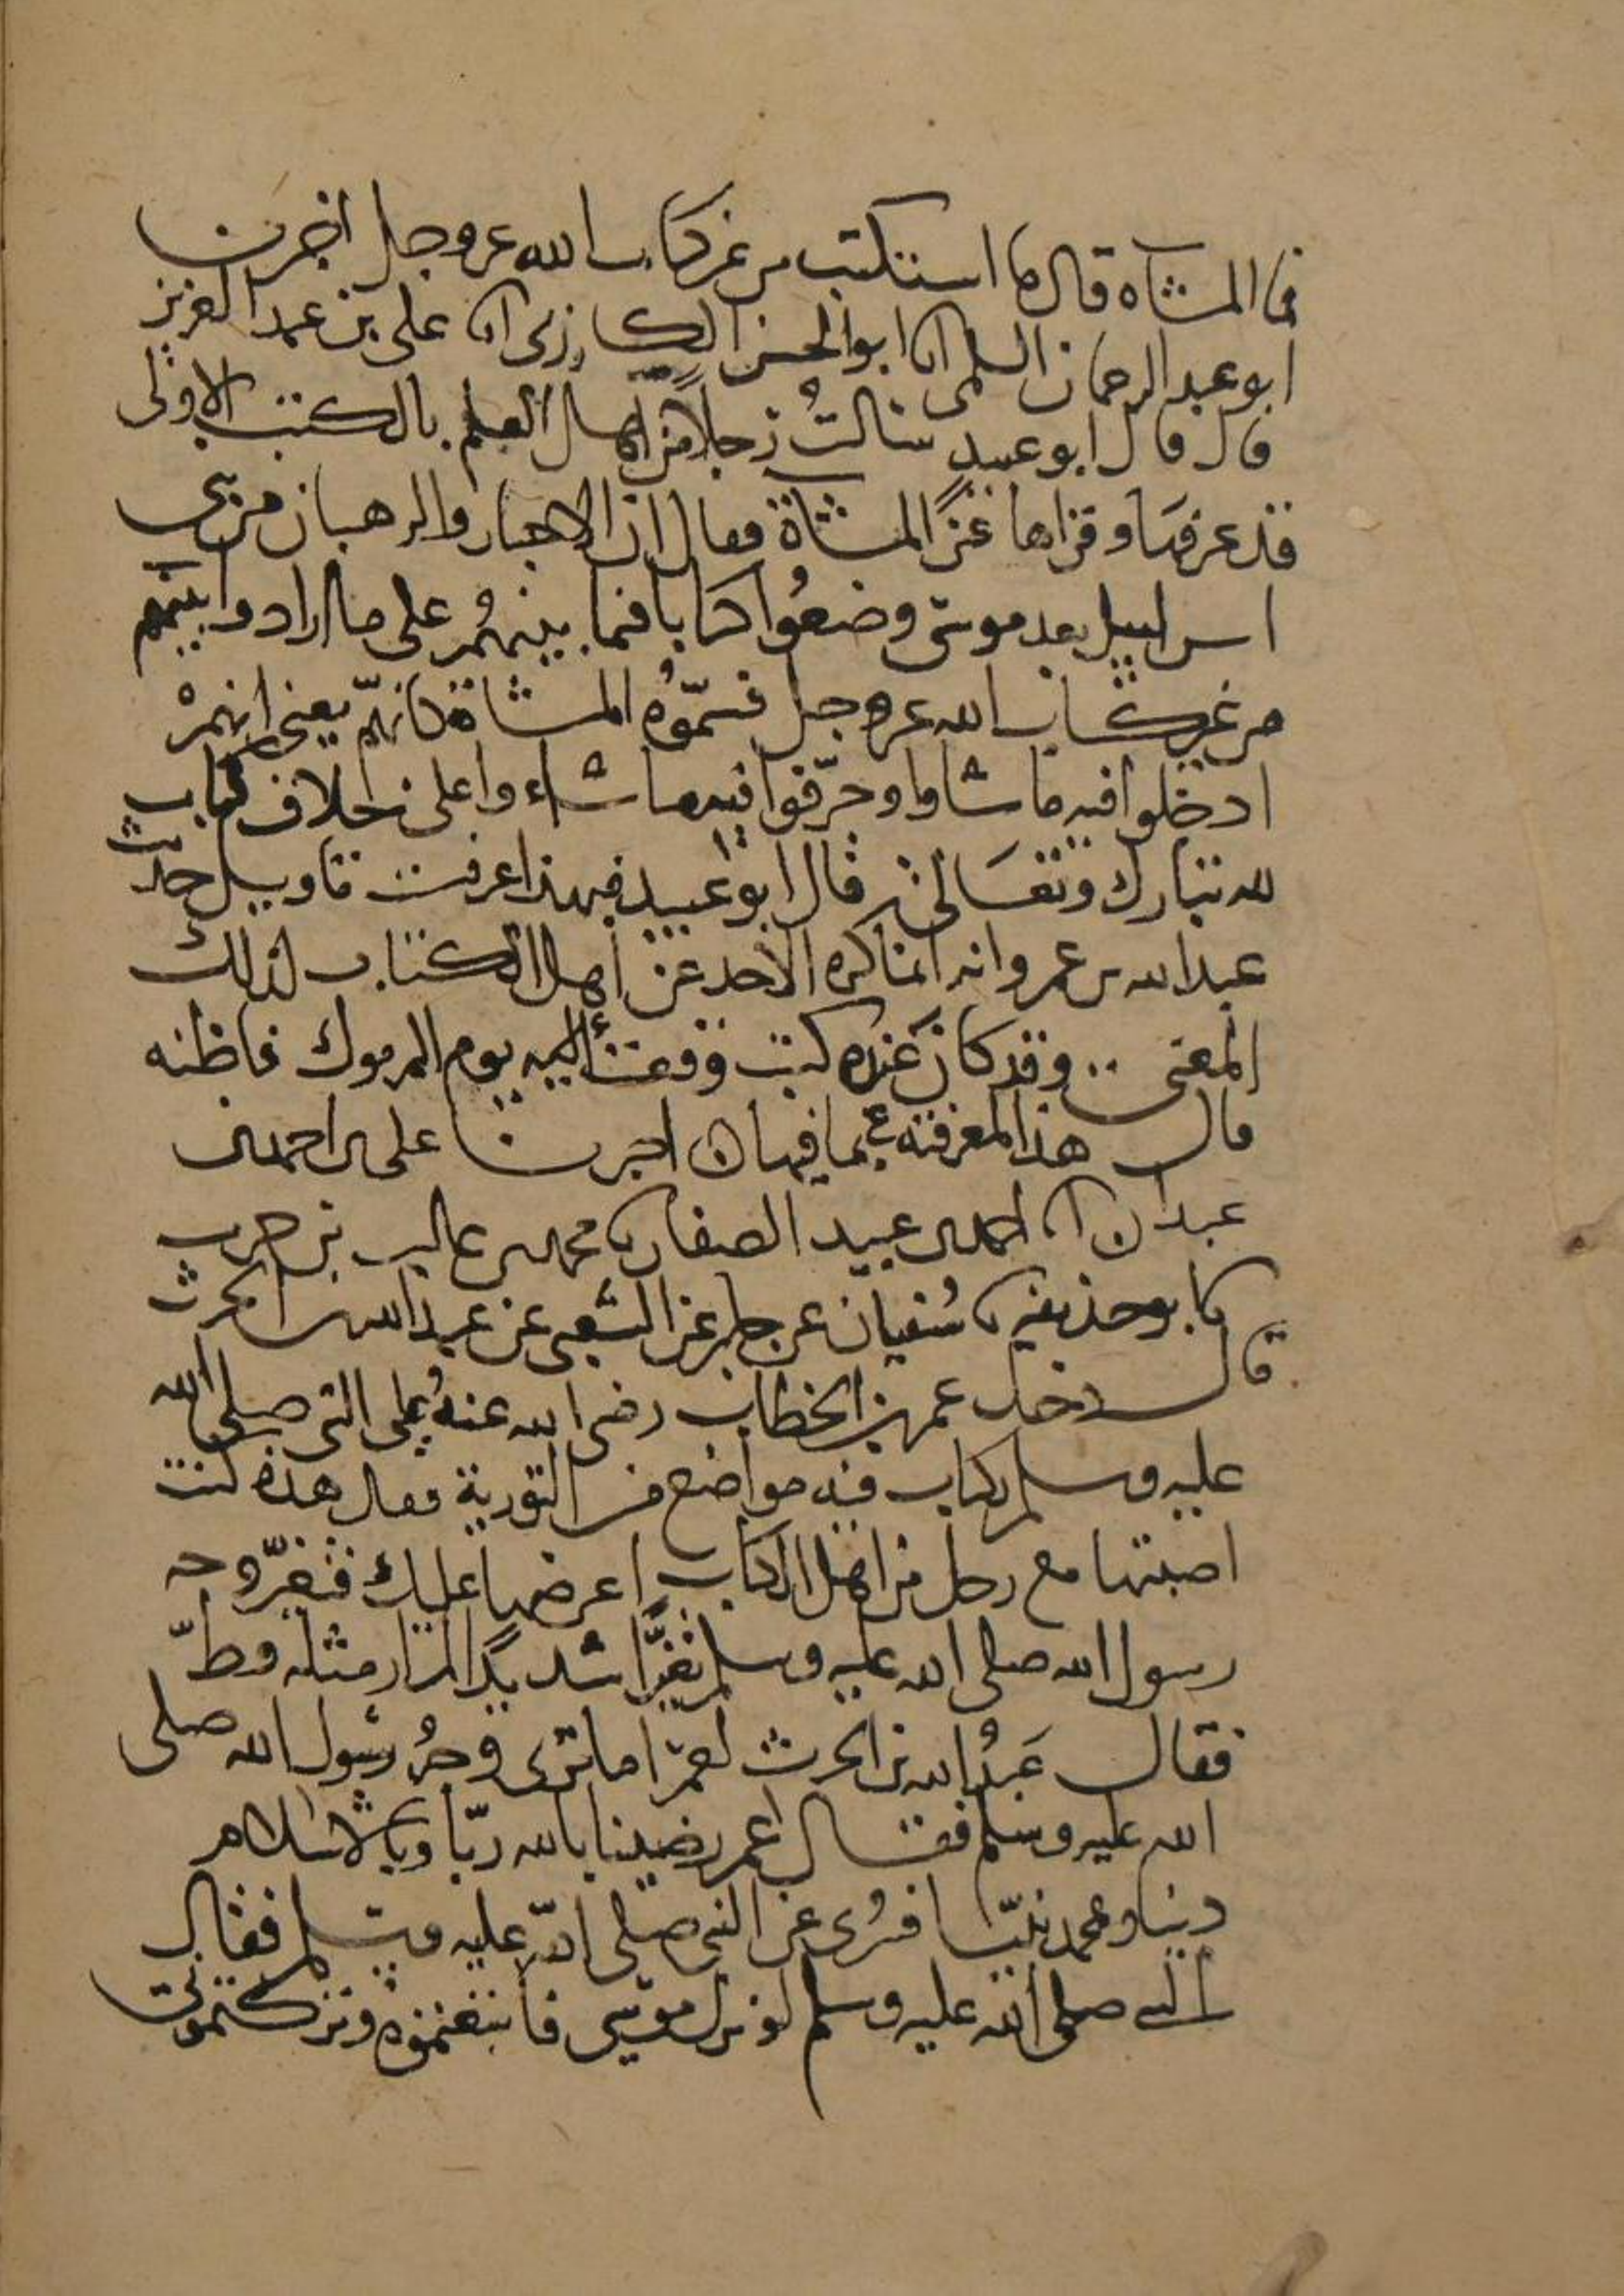 فما المشناه قال ما استكتب من غير كتاب الله عز وجل اخبرنا
ابو عبد الرحمان السلمى انا ابو الحسن الكارزى انا على بن عبد العزيز
قال قال ابو عبيد سالتُ رجلاً من اهل العلم بالكتب الاولى
قد عرفها وقراها عن المشناة فقال ان الاحبار والرهبان من بنى
اسرائيل بعد موسى وضعُوا كتابا فيما بينهُم على ما ارادوا بينهم
من غير كتاب الله عز وجل فسمّوهُ المشناة كانهم يعنى انهم
ادخلوا فيه ما شاوا وحرّفوا فيه ما شاءوا على خلاف كتاب
لله تبارك وتعالى قال ابو عبيد فبهذا عرفت تاويل حديث
عبد الله بن عمرو انه انما كره الاخذ عن اهل الكتاب لذلك
المعنى وقد كان عنده كتب وقعت اليه يوم اليرموك فاظنه
قال هذا لمعرفته بما فيها اخبرنا على بن احمد بن
عبدان انا احمد بن عبيد الصفار نا محمد بن غالب بن حرب
نا ابو حذيفه نا سُفيان عن جابر عن الشعبى عن عبد الله بن الحرث
قال دخل عمر بن الخطاب رضى الله عنهُ على النبى صلى الله
عليه وسلم بكتاب فيه مواضع من التورية فقال هذه كنت
اصبتها مع رجل من اهل الكتاب اعرضها عليك فتغيّر وجه
رسول الله صلى الله عليه وسلم تغيّرًا شديدًا لم ار مثله قطّ
فقال عَبدُ الله بن الحرث لعمر اما ترى وجهُ رسُول الله صلى
الله عليه وسلم فقال عمر رضينا بالله ربّا وبالاسلام
دينا وبمحمد نبيّا فسُرى عن النبى صلى الله عليه وسلم فقال
النبى صلى الله عليه وسلم لو نزل موسى فاتبعتموه وتركتمونى